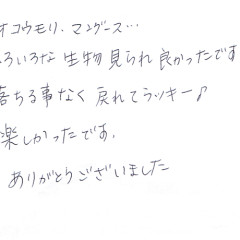 オコウモリ、マングース…
ろいろな 生物 見られ 良かったです
落ちる事なく 戻れてラッキー♪
楽しかったです。
ありがとうございました